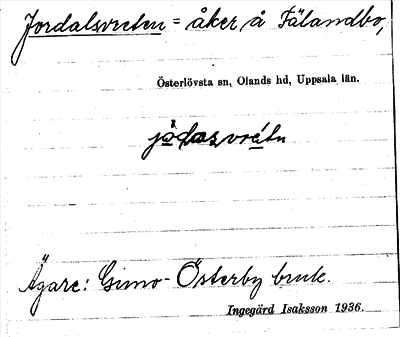 Jordalsvreten = åker å Fälandbo,
Österlövsta sn, Olands hd, Uppsala län.
jo̊dasvrétn
Ägare: Gimo-Österby bruk.
Ingegärd Isaksson 1936.